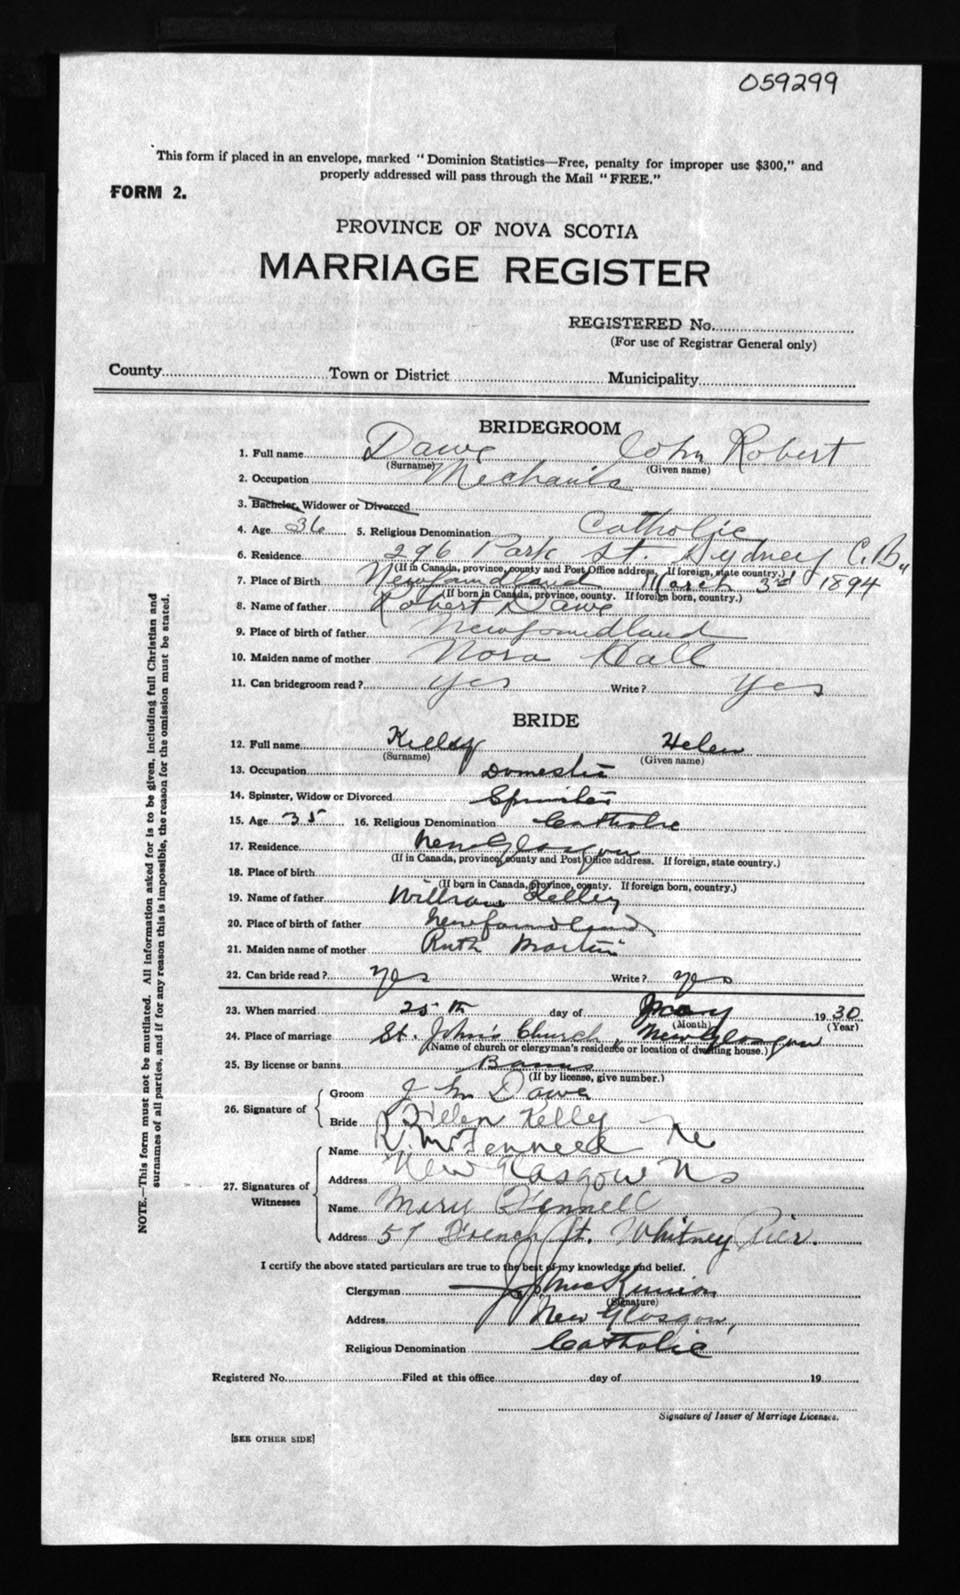 059299
This form if placed in an envelope, marked "Dominion Statistics—Free, penalty for improper use $300," and
properly addressed will pass through the Mail "FREE."
FORM 2.
PROVINCE OF NOVA SCOTIA
MARRIAGE REGISTER
REGISTERED No.
(For use of Registrar General only)
County Town or District Municipality
BRIDEGROOM
1. Full name Dawe John Robert
(Surname) (Given name)
2. Occupation
3. Bachelor, Widower or Divorced
4. Age 36 5. Religious Denomination Catholic
6. Residence 296 Park St. Sydney C.B.
(If in Canada, province, county and Post Office address. If foreign, state country.)
7. Place of Birth Newfoundland March 3rd 1894
(If born in Canada, province, county. If foreign born, country.)
8. Name of father Robert Dawe
9. Place of birth of father Newfoundland
10. Maiden name of mother Nora Hall
11. Can bridegroom read? yes Write? yes
BRIDE
12. Full name Kelley Helen
(Surname) (Given name)
13. Occupation Domestic
14. Spinster, Widow or Divorced Spinster
15. Age 35 16. Religious Denomination Catholic
17. Residence New Glasgow
(If in Canada, province, county and Post Office address. If foreign, state country.)
18. Place of birth
(If born in Canada, province, county. If foreign born, country.)
19. Name of father William Kelley
20. Place of birth of father Newfoundland
21. Maiden name of mother Ruth Martin
22. Can bride read? yes Write? yes
23. When married 25th day of May 1930
(Month) (Year)
24. Place of marriage St. John's Church, New Glasgow
(Name of church or clergyman's residence or location of dwelling house.)
25. By license or banns Banns
(If by license, give number.)
26. Signature of Groom Dawe
Bride Helen Kelly
27. Signatures of Witnesses Name
Address New Glasgow NS
Name Mary
Address 57 French St. Whitney Pier.
I certify the above stated particulars are true to the best of my knowledge and belief.
Clergyman
(Signature)
Address New Glasgow,
Religious Denomination Catholic
Registered No. Filed at this office day of 19
Signature of Issuer of Marriage Licenses.
[SEE OTHER SIDE]
NOTE.—This form must not be mutilated. All information asked for is to be given, including full Christian and
surnames of all parties, and if for any reason this is impossible, the reason for the omission must be stated.